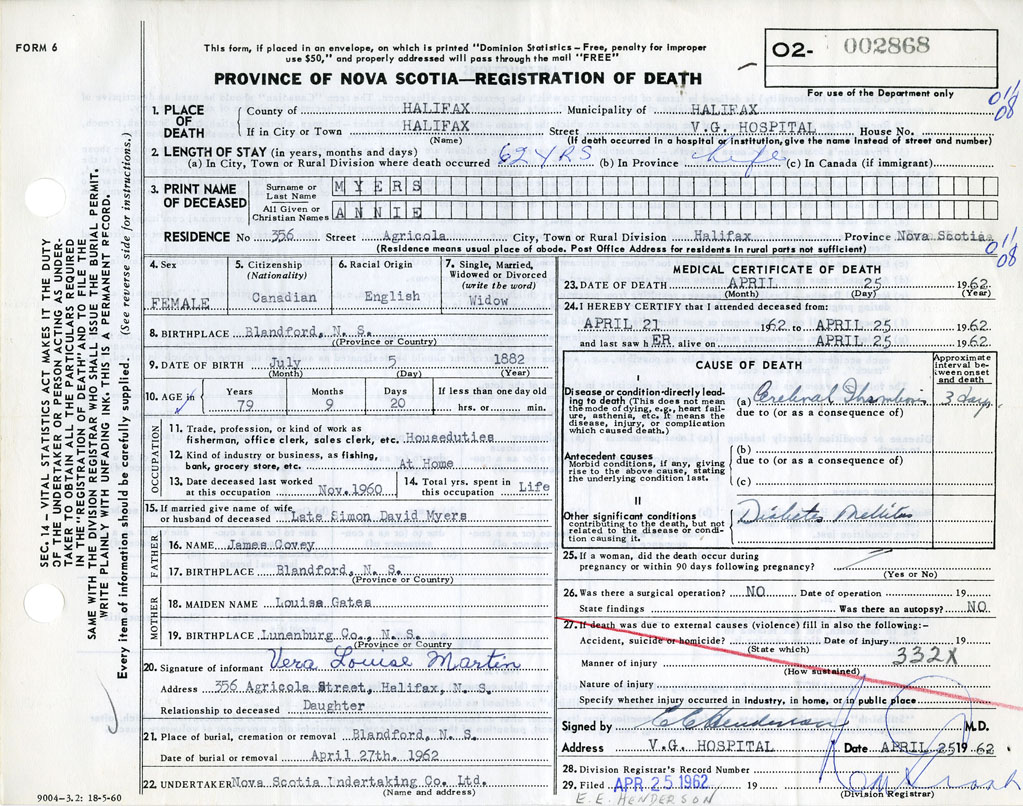 FORM 6
This form, if placed in an envelope, on which is printed "Dominion Statistics – Free, penalty for improper
use $50," and properly addressed will pass through the mail "FREE"
PROVINCE OF NOVA SCOTIA—REGISTRATION OF DEATH
02- 002868
For use of the Department only
011
08
1. PLACE OF DEATH
County of HALIFAX Municipality of HALIFAX
If in City or Town HALIFAX Street V.G. HOSPITAL House No.
(Name) (If death occurred in a hospital or institution, give the name instead of street and number)
2. LENGTH OF STAY (in years, months and days)
(a) In City, Town or Rural Division where death occurred 62 YRS (b) In Province Life (c) In Canada (if immigrant)
3. PRINT NAME OF DECEASED
Surname or Last Name MYERS
All Given or Christian Names ANNIE
RESIDENCE No 356 Street Agricola City, Town or Rural Division Halifax Province Nova Scotia
(Residence means usual place of abode. Post Office Address for residents in rural parts not sufficient)
011
08
4. Sex FEMALE
5. Citizenship (Nationality) Canadian
6. Racial Origin English
7. Single, Married, Widowed or Divorced (write the word) Widow
8. BIRTHPLACE Blandford, N. S.
((Province or Country)
9. DATE OF BIRTH July 5 1882
(Month) (Day) (Year)
10. AGE in Years 79 Months 9 Days 20 If less than one day old hrs. or min.
OCCUPATION
11. Trade, profession, or kind of work as
fisherman, office clerk, sales clerk, etc. Houseduties
12. Kind of industry or business, as fishing,
bank, grocery store, etc. At Home
13. Date deceased last worked at this occupation Nov. 1960
14. Total yrs. spent in this occupation Life
15. If married give name of wife
or husband of deceased Late Simon David Myers
FATHER
16. NAME James Covey
17. BIRTHPLACE Blandford, N. S.
(Province or Country)
MOTHER
18. MAIDEN NAME Louisa Gates
19. BIRTHPLACE Lunenburg Co., N. S.
(Province or Country)
20. Signature of informant Vera Louise Martin
Address 356 Agricola Street, Halifax, N. S.
Relationship to deceased Daughter
21. Place of burial, cremation or removal Blandford, N. S.
Date of burial or removal April 27th. 1962
22. UNDERTAKER Nova Scotia Undertaking Co. Ltd.
(Name and address)
9004-3.2: 18-5-60
MEDICAL CERTIFICATE OF DEATH
23. DATE OF DEATH APRIL 25 1962
(Month) (Day) (Year)
24. I HEREBY CERTIFY that I attended deceased from:
APRIL 21 1962 to APRIL 25 1962
and last saw hER alive on APRIL 25 1962
CAUSE OF DEATH
Approximate interval between onset and death
I
Disease or condition directly leading to death (This does not mean the mode of dying, e.g., heart failure, asthenia, etc. It means the disease, injury, or complication which caused death.)
(a) Cerebral Thrombosis 3 days
due to (or as a consequence of)
Antecedent causes
Morbid conditions, if any, giving rise to the above cause, stating the underlying condition last.
(b)
due to (or as a consequence of)
(c)
II
Other significant conditions
contributing to the death, but not related to the disease or condition causing it.
Diabetes Mellitus
25. If a woman, did the death occur during
pregnancy or within 90 days following pregnancy?
(Yes or No)
26. Was there a surgical operation? NO Date of operation 19
State findings Was there an autopsy? NO
27. If death was due to external causes (violence) fill in also the following:-
Accident, suicide or homicide? Date of injury 19
(State which)
332X
Manner of injury
(How sustained)
Nature of injury
Specify whether injury occurred in industry, in home, or in public place
Signed by C C Henderson M.D.
Address V.G. HOSPITAL Date APRIL 25 19 62
28. Division Registrar's Record Number
29. Filed APR 25 1962 19
(Division Registrar)
E. E. HENDERSON
SEC. 14 – VITAL STATISTICS ACT MAKES IT THE DUTY
OF THE UNDERTAKER OR PERSON ACTING AS UNDER-
TAKER TO OBTAIN ALL THE PARTICULARS REQUIRED
IN THE "REGISTRATION OF DEATH" AND TO FILE THE
SAME WITH THE DIVISION REGISTRAR WHO SHALL ISSUE THE BURIAL PERMIT.
WRITE PLAINLY WITH UNFADING INK. THIS IS A PERMANENT RECORD.
Every item of information should be carefully supplied. (See reverse side for instructions.)